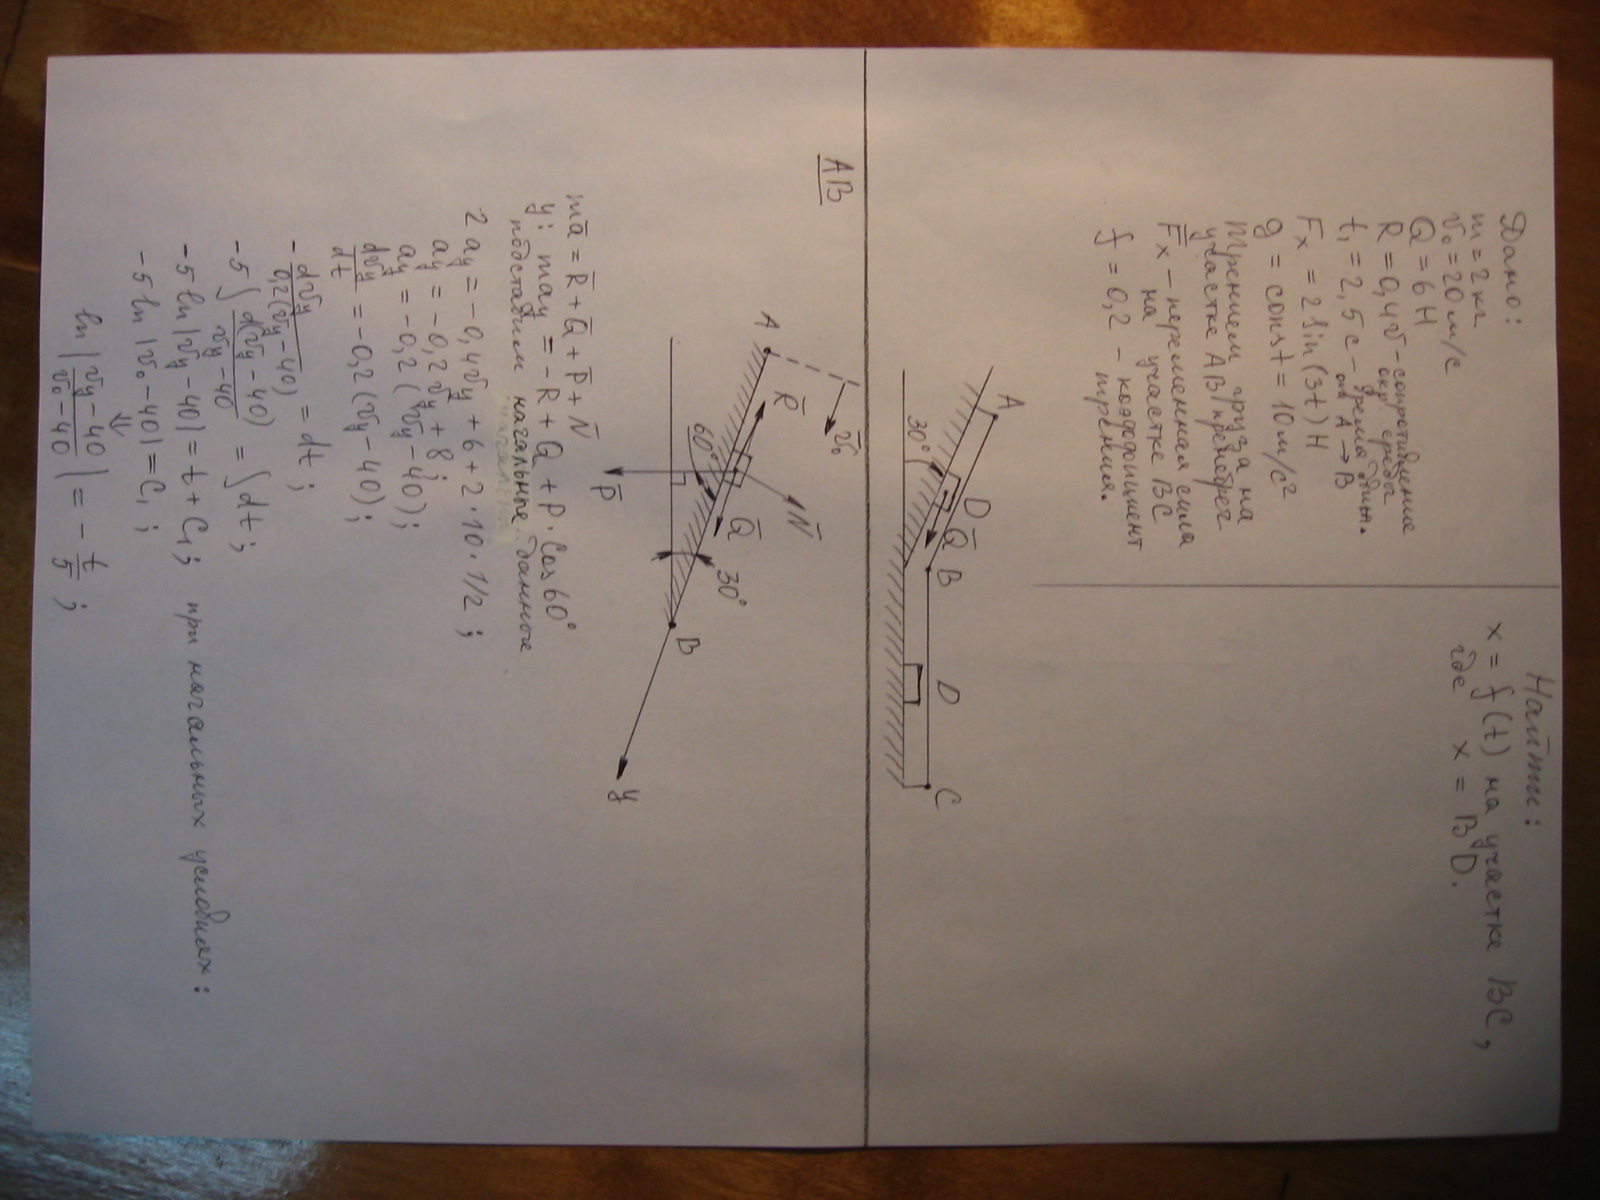 Дано:
m = 2 кг
v₀ = 20 м/с
Q = 6 Н
R = 0,4v - сопротивление окр. среды
t₁ = 2,5 с - время движ. от A → B
Fx = 2 sin (3t) Н
g = const = 10 м/с²
Трением груза на участке AB пренебрег
F̅x - переменная сила на участке BC
f = 0,2 - коэффициент трения.
Найти:
x = f(t) на участке BC,
где x = BD.
A
D
Q̅
B
30°
D
C
AB
A
v̅₀
R̅
N̅
Q̅
60°
30°
P̅
B
y
ma̅ = R̅ + Q̅ + P̅ + N̅
y: may = -R + Q + P · Cos 60°
подставим начальные данные
2 ay = -0,4vy + 6 + 2 · 10 · 1/2 ;
ay = -0,2 vy + 8 ;
ay = -0,2 (vy - 40) ;
dvy/dt = -0,2 (vy - 40) ;
- dvy/0,2(vy - 40) = dt ;
-5 ∫ d(vy - 40)/vy - 40 = ∫ dt ;
-5 ln |vy - 40| = t + C₁ ; при начальных условиях :
-5 ln |v₀ - 40| = C₁ ;
⇓
ln |vy - 40/v₀ - 40| = - t/5 ;